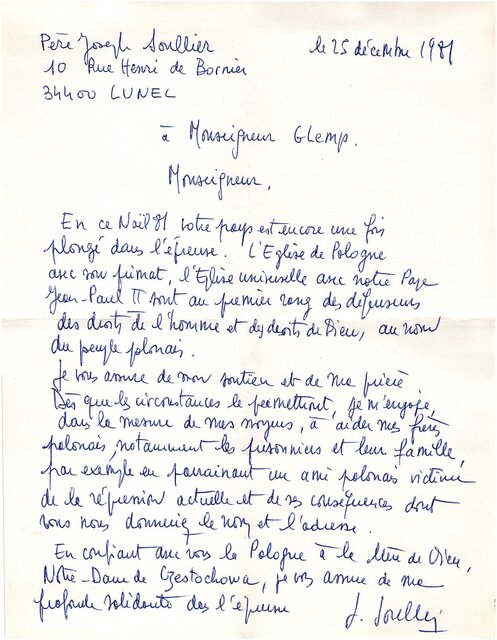 Père Joseph Soullier
le 25 décembre 1981
10 Rue Henri de Bornier
34400 LUNEL
à Monseigneur Glemp.
Monseigneur,
En ce Noël 81 votre pays est encore une fois
plongé dans l'épreuve. L'Eglise de Pologne
avec son primat, l'Eglise universelle avec notre Pape
Jean-Paul II sont au premier rang des défenseurs
des droits de l'homme et des droits de Dieu, au nom
du peuple polonais.
Je vous assure de mon soutien et de ma prière
Dès que les circonstances le permettront, je m'engage,
dans la mesure de mes moyens, à aider mes frères
polonais, notamment les prisonniers et leur famille,
par exemple en parrainant un ami polonais victime
de la répression actuelle et de ses conséquences dont
vous nous donneriez le nom et l'adresse.
En confiant avec vous la Pologne à la Mère de Dieu,
Notre-Dame de Czestochowa, je vous assure de ma
profonde solidarité dans l'épreuve
J. Soullier